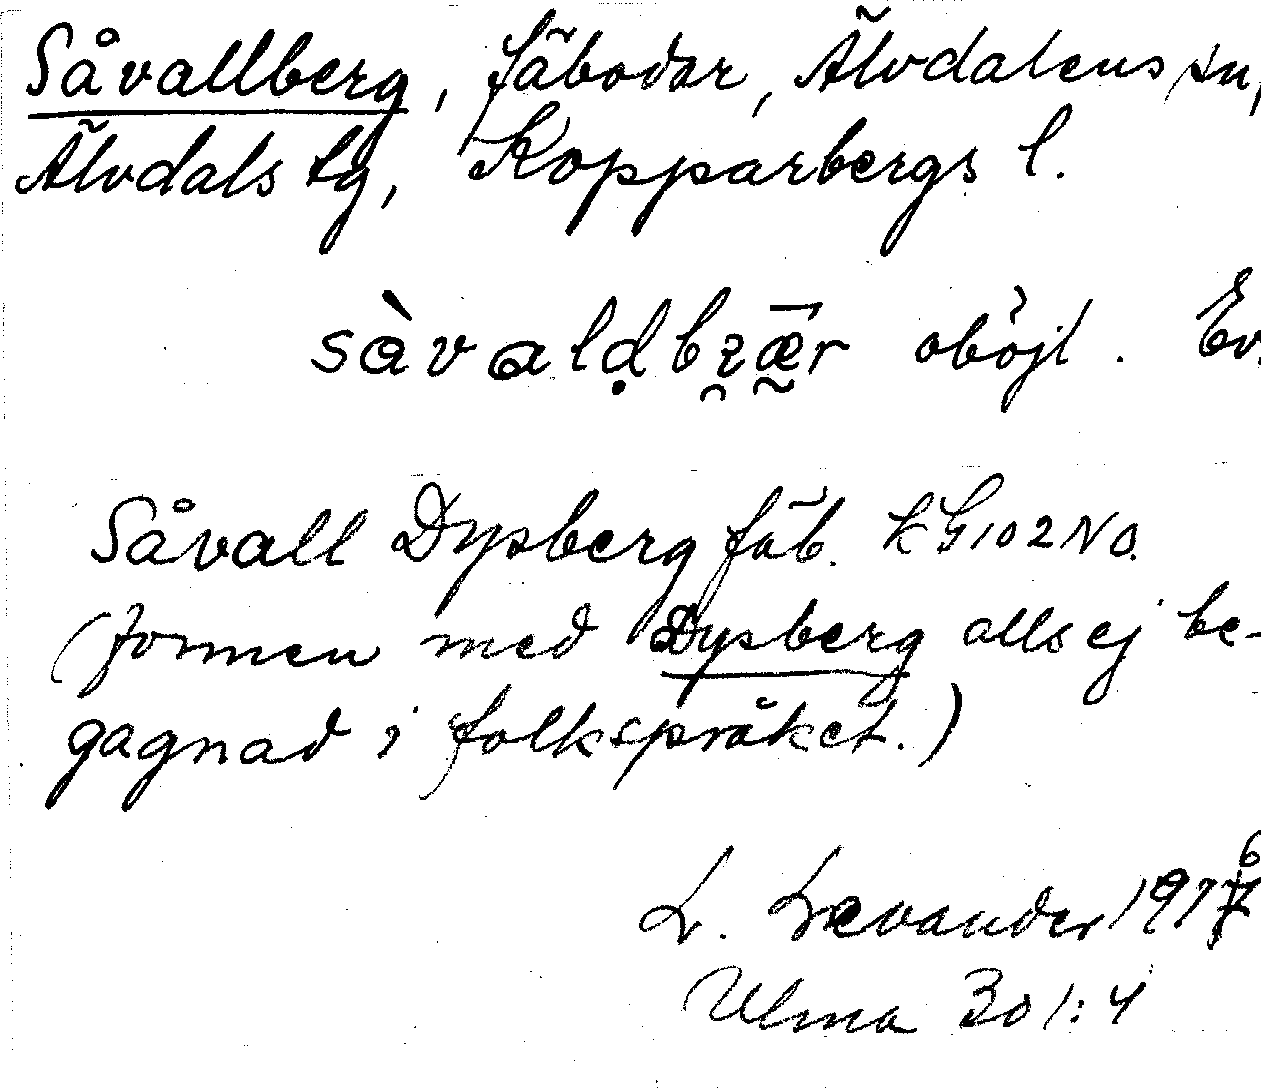 Såvallberg, fäbodar, Älvdalens sn,
Älvdals tg, Kopparbergs l.
sàvalḍbɀ̯ǣ̰r oböjl. Ev.
Såvall Dysberg fäb. KG102NO.
(formen med Dysberg alls ej be-
gagnad i folkspråket.)
6
L. Levander 1917
Ulma 301:4